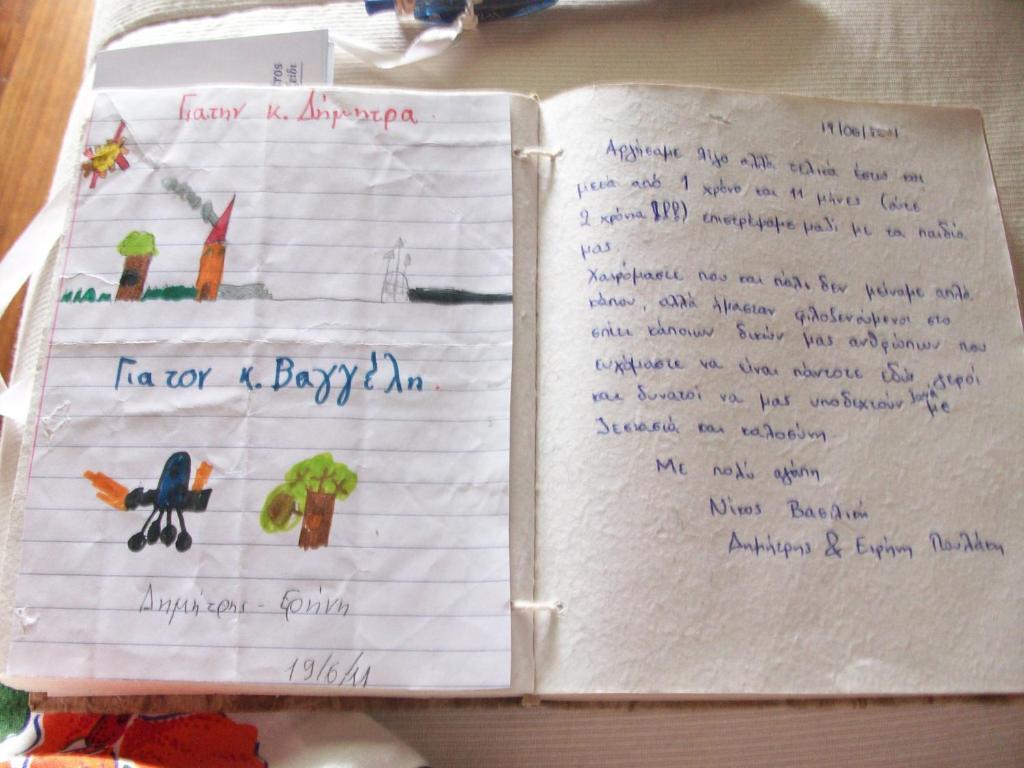 Για την κ. Δήμητρα.
Για τον κ. Βαγγέλη.
Δημήτρης - Ειρήνη
19/6/11
19/06/2011
Αργήσαμε λίγο αλλά τελικά έστω και
μετά από 1 χρόνο και 11 μήνες (ούτε
2 χρόνια !!!) επιστρέψαμε μαζί με τα παιδιά
μας.
Χαιρόμαστε που και πάλι δεν μείναμε απλά
κάπου, αλλά ήμασταν φιλοξενούμενοι στο
σπίτι κάποιων δικών μας ανθρώπων που
ευχόμαστε να είναι πάντοτε εδώ, γεροί
και δυνατοί να μας υποδεχτούν ξανά με
ζεστασιά και καλοσύνη
Με πολύ αγάπη
Νίκος Βασιλική
Δημήτρης & Ειρήνη Πουλάκη